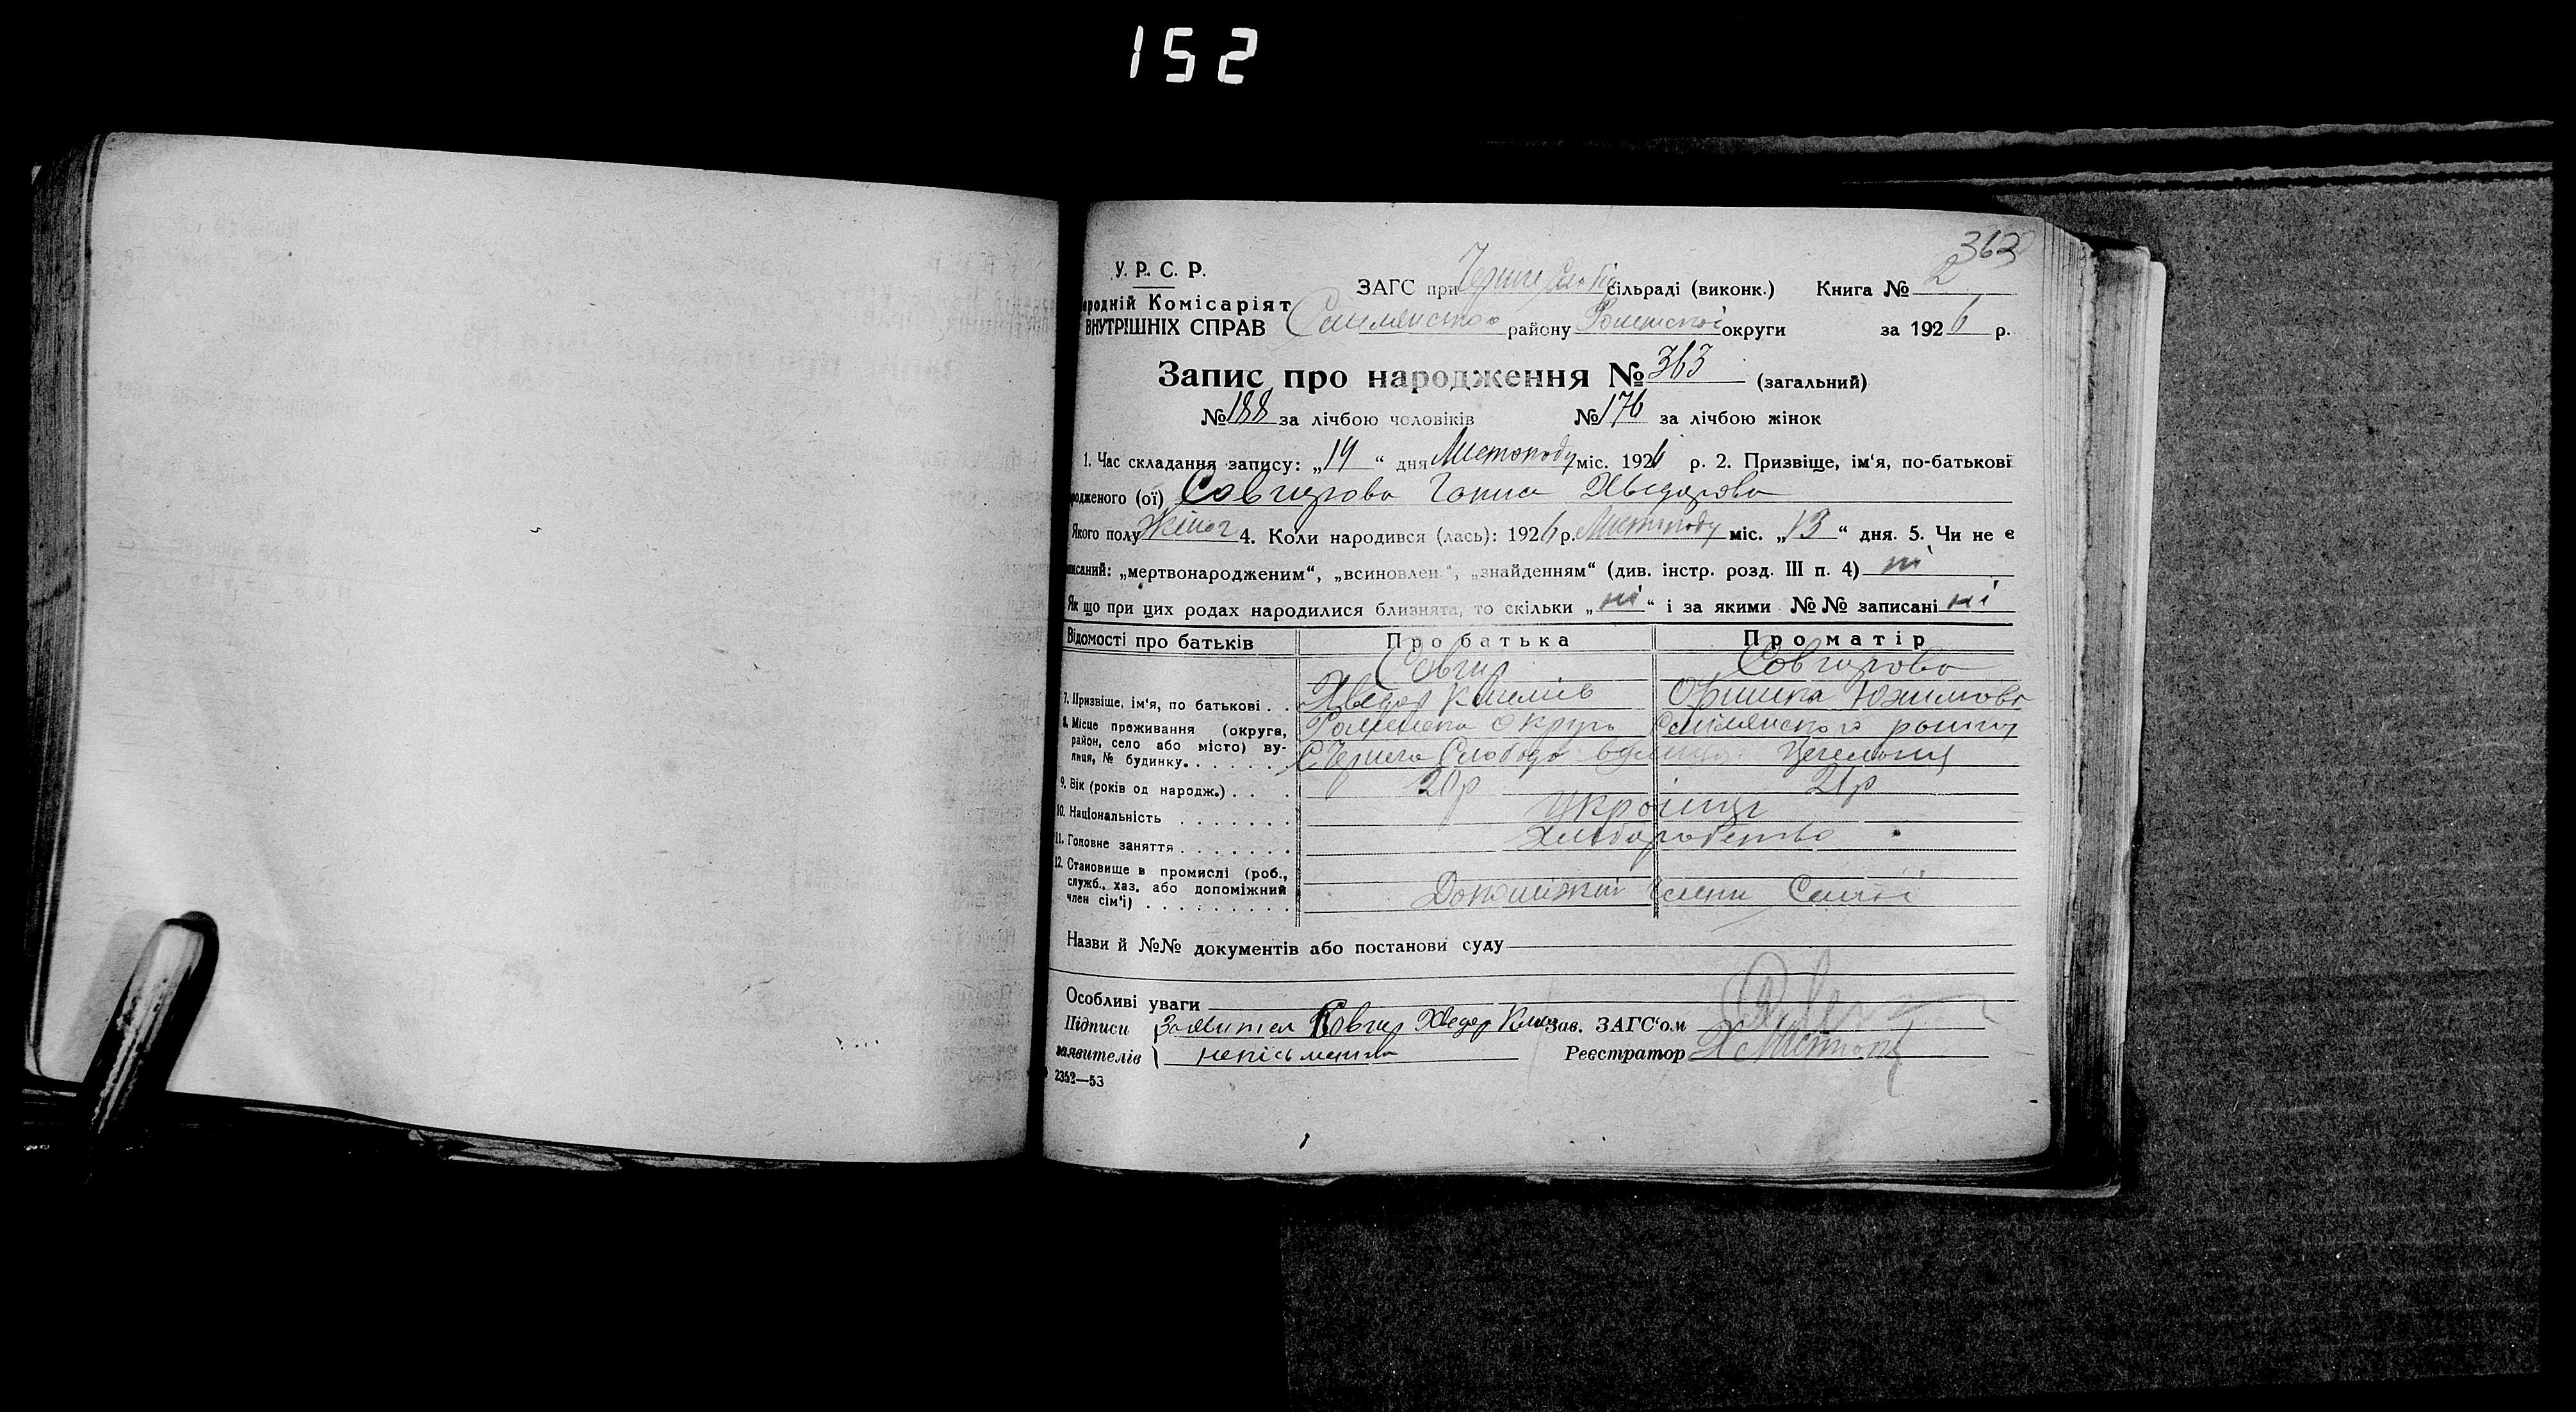 152
363
У. Р. С. Р.
ЗАГС при сільраді (виконк.) Книга № 2
ародній Комісаріят
ВНУТРІШНІХ СПРАВ району Роменської округи за 1926 р.
Запис про народження № 363 (загальний)
№ 188 за лічбою чоловіків № 176 за лічбою жінок
1. Час складання запису: „14“ дня Листопаду міс. 1926 р. 2. Призвіще, ім‘я, по-батькові
родженого (ої) Совгирова Ганна Хведорова
Якого полу жіноч 4. Коли народився (лась): 1926 р. Листопаду міс. „13“ дня. 5. Чи не є
писаний: „мертвонародженим“, „всиновлен.“, „знайденням“ (див. інстр. розд. III п. 4) ні
Як що при цих родах народилися близнята, то скільки „ні“ і за якими №№ записані ні
Відомості про батьків Про батька Про матір
Совгир Совгирова
7. Призвіще, ім‘я, по батькові . . Хведор Климів Оришка Юхимова
8. Місце проживання (округа, Роменська округа
район, село або місто) ву-
лиця, № будинку. . . . . . Слобода вулиця Цегельня
9. Вік (років од народж.) . . . 20р 21р
10. Національність . . . . . . . Українці
11. Головне заняття . . . . . . . Хліборобство
12. Становище в промислі (роб.,
служб., хаз. або допоміжний
член сім‘ї) . . . . . . . . . Допоміжні члени Сімї
Назви й №№ документів або постанови суду
Особливі уваги
Підписи Заявител Совгир Хведор Клим Зав. ЗАГС‘ом
заявителів неписьменна Реєстратор
2352—53